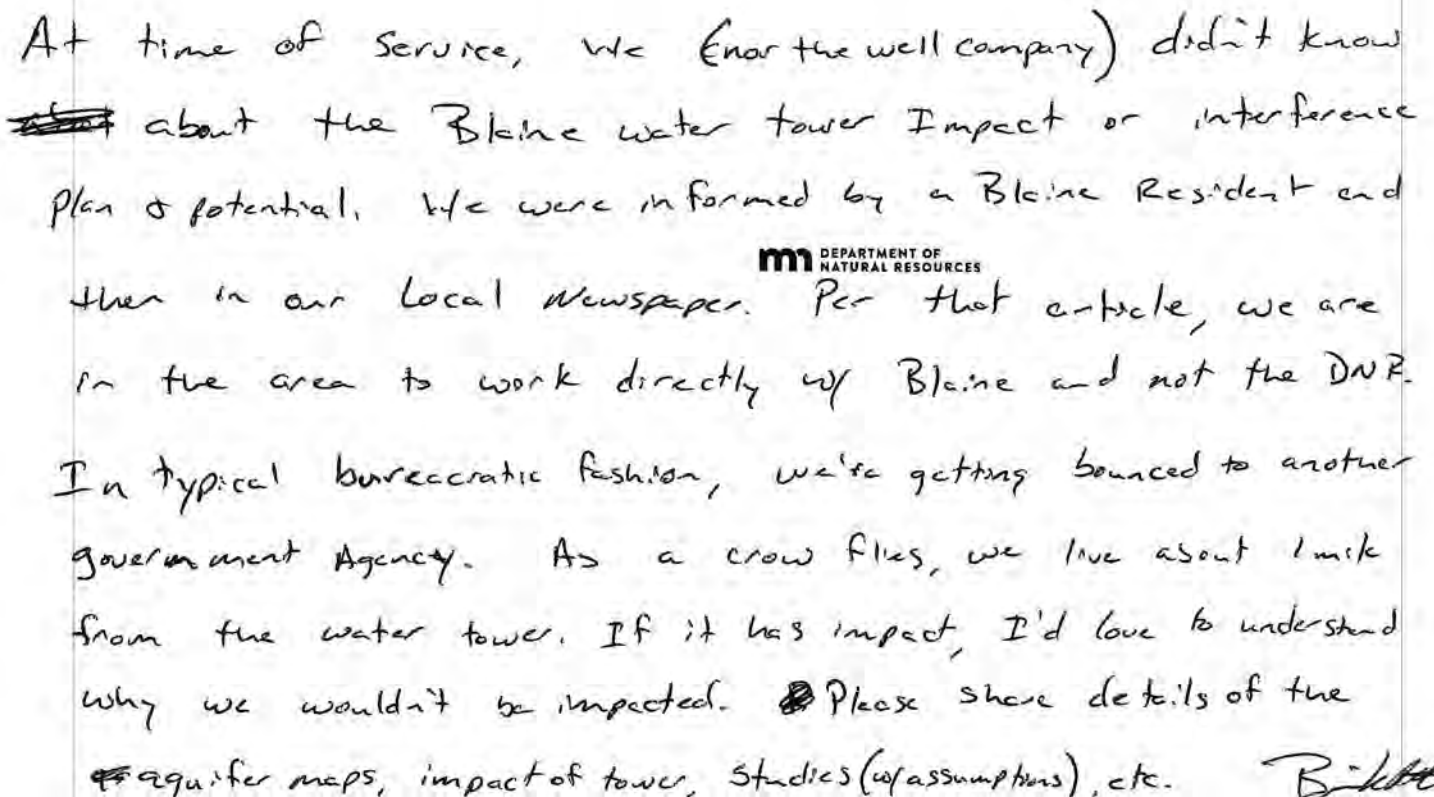 At time of Service, we (nor the well company) didn't know
about the Blaine water tower Impact or interference
Plan & potential. We were informed by a Blaine Resident and
DEPARTMENT OF
NATURAL RESOURCES
then in our Local Newspaper. Per that article, we are
in the area to work directly w/ Blaine and not the DNR.
In typical bureacratic fashion, we're getting bounced to another
government Agency. As a crow flies, we live about 1 mile
from the water tower. If it has impact, I'd love to understand
why we wouldn't be impacted. Please share details of the
aquifer maps, impact of tower, Studies (w/assumptions), etc.